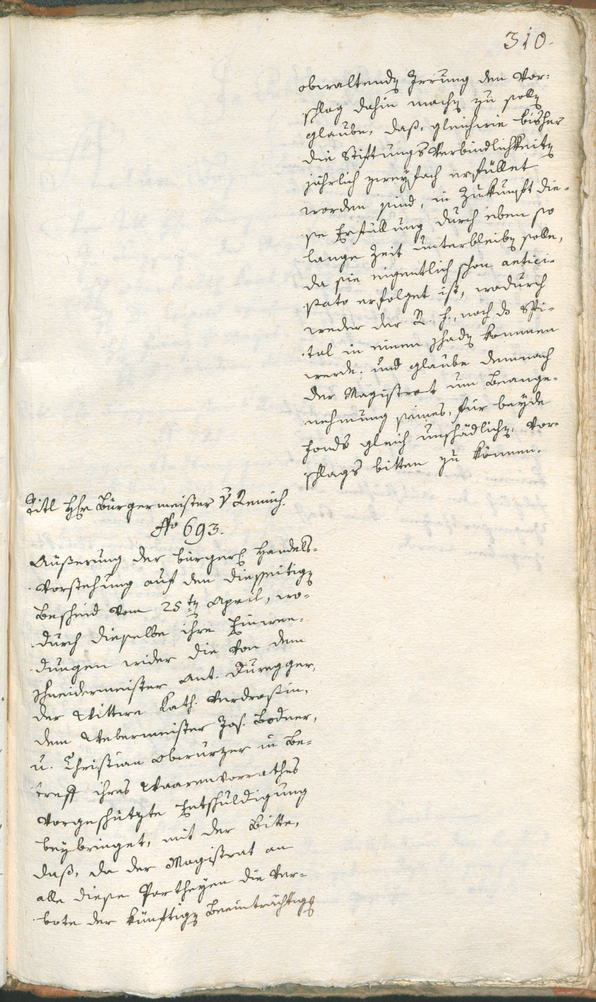 310.
obwaltendn Irrung den Vor-
schlag dahin machn zu solln
glaube, daß, gleichwie bisher
die Stiftungs Verbindlichkeitn
jährlich zweyfach erfüllet
worden sind, in Zukunft die-
se Erfüllung durch eben so
lange Zeit unterbleibn solle,
da sie eigentlich schon antici-
pato erfolget ist, wodurch
weder der R. f., noch ds Spi-
tal in einen Schadn kommen
werde: und glaube demnach
der Magistrat um Beange-
nehmung seines, für beyde
Fonds gleich unschädlichn Vor-
schlags bitten zu können.
Titl Hr Bürgermeister v
No 693.
Äußerung der bürgerl Handels-
Vorstehung auf den diesseitign
Bescheid vom 25 tn April, wo-
durch dieselbe ihre Einwen-
dungen wider die von dem
Schneidermeister Ant. Duregger,
der Wittwe Kath. Verdroßin,
dem Webermeister Jos. Bodner,
u. Christian Oberurzer in Be-
treff ihres Waarenvorrathes
vorgeschützte Entschuldigung
beybringet, mit der Bitte,
daß, da der Magistrat an
alle diese Partheyen die Ver-
bote der künftign Beeinträchtigg